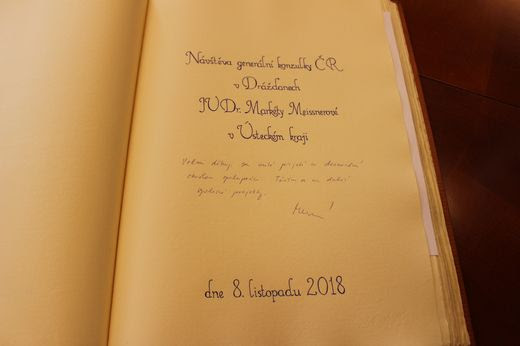 Návštěva generální konzulky ČR
v Drážďanech
JUDr. Markéty Meissnerové
v Ústeckém kraji
Velmi děkuji za milé přijetí a dosavadní
skvělou spolupráci. Těším se na další
společné projekty.
dne 8. listopadu 2018